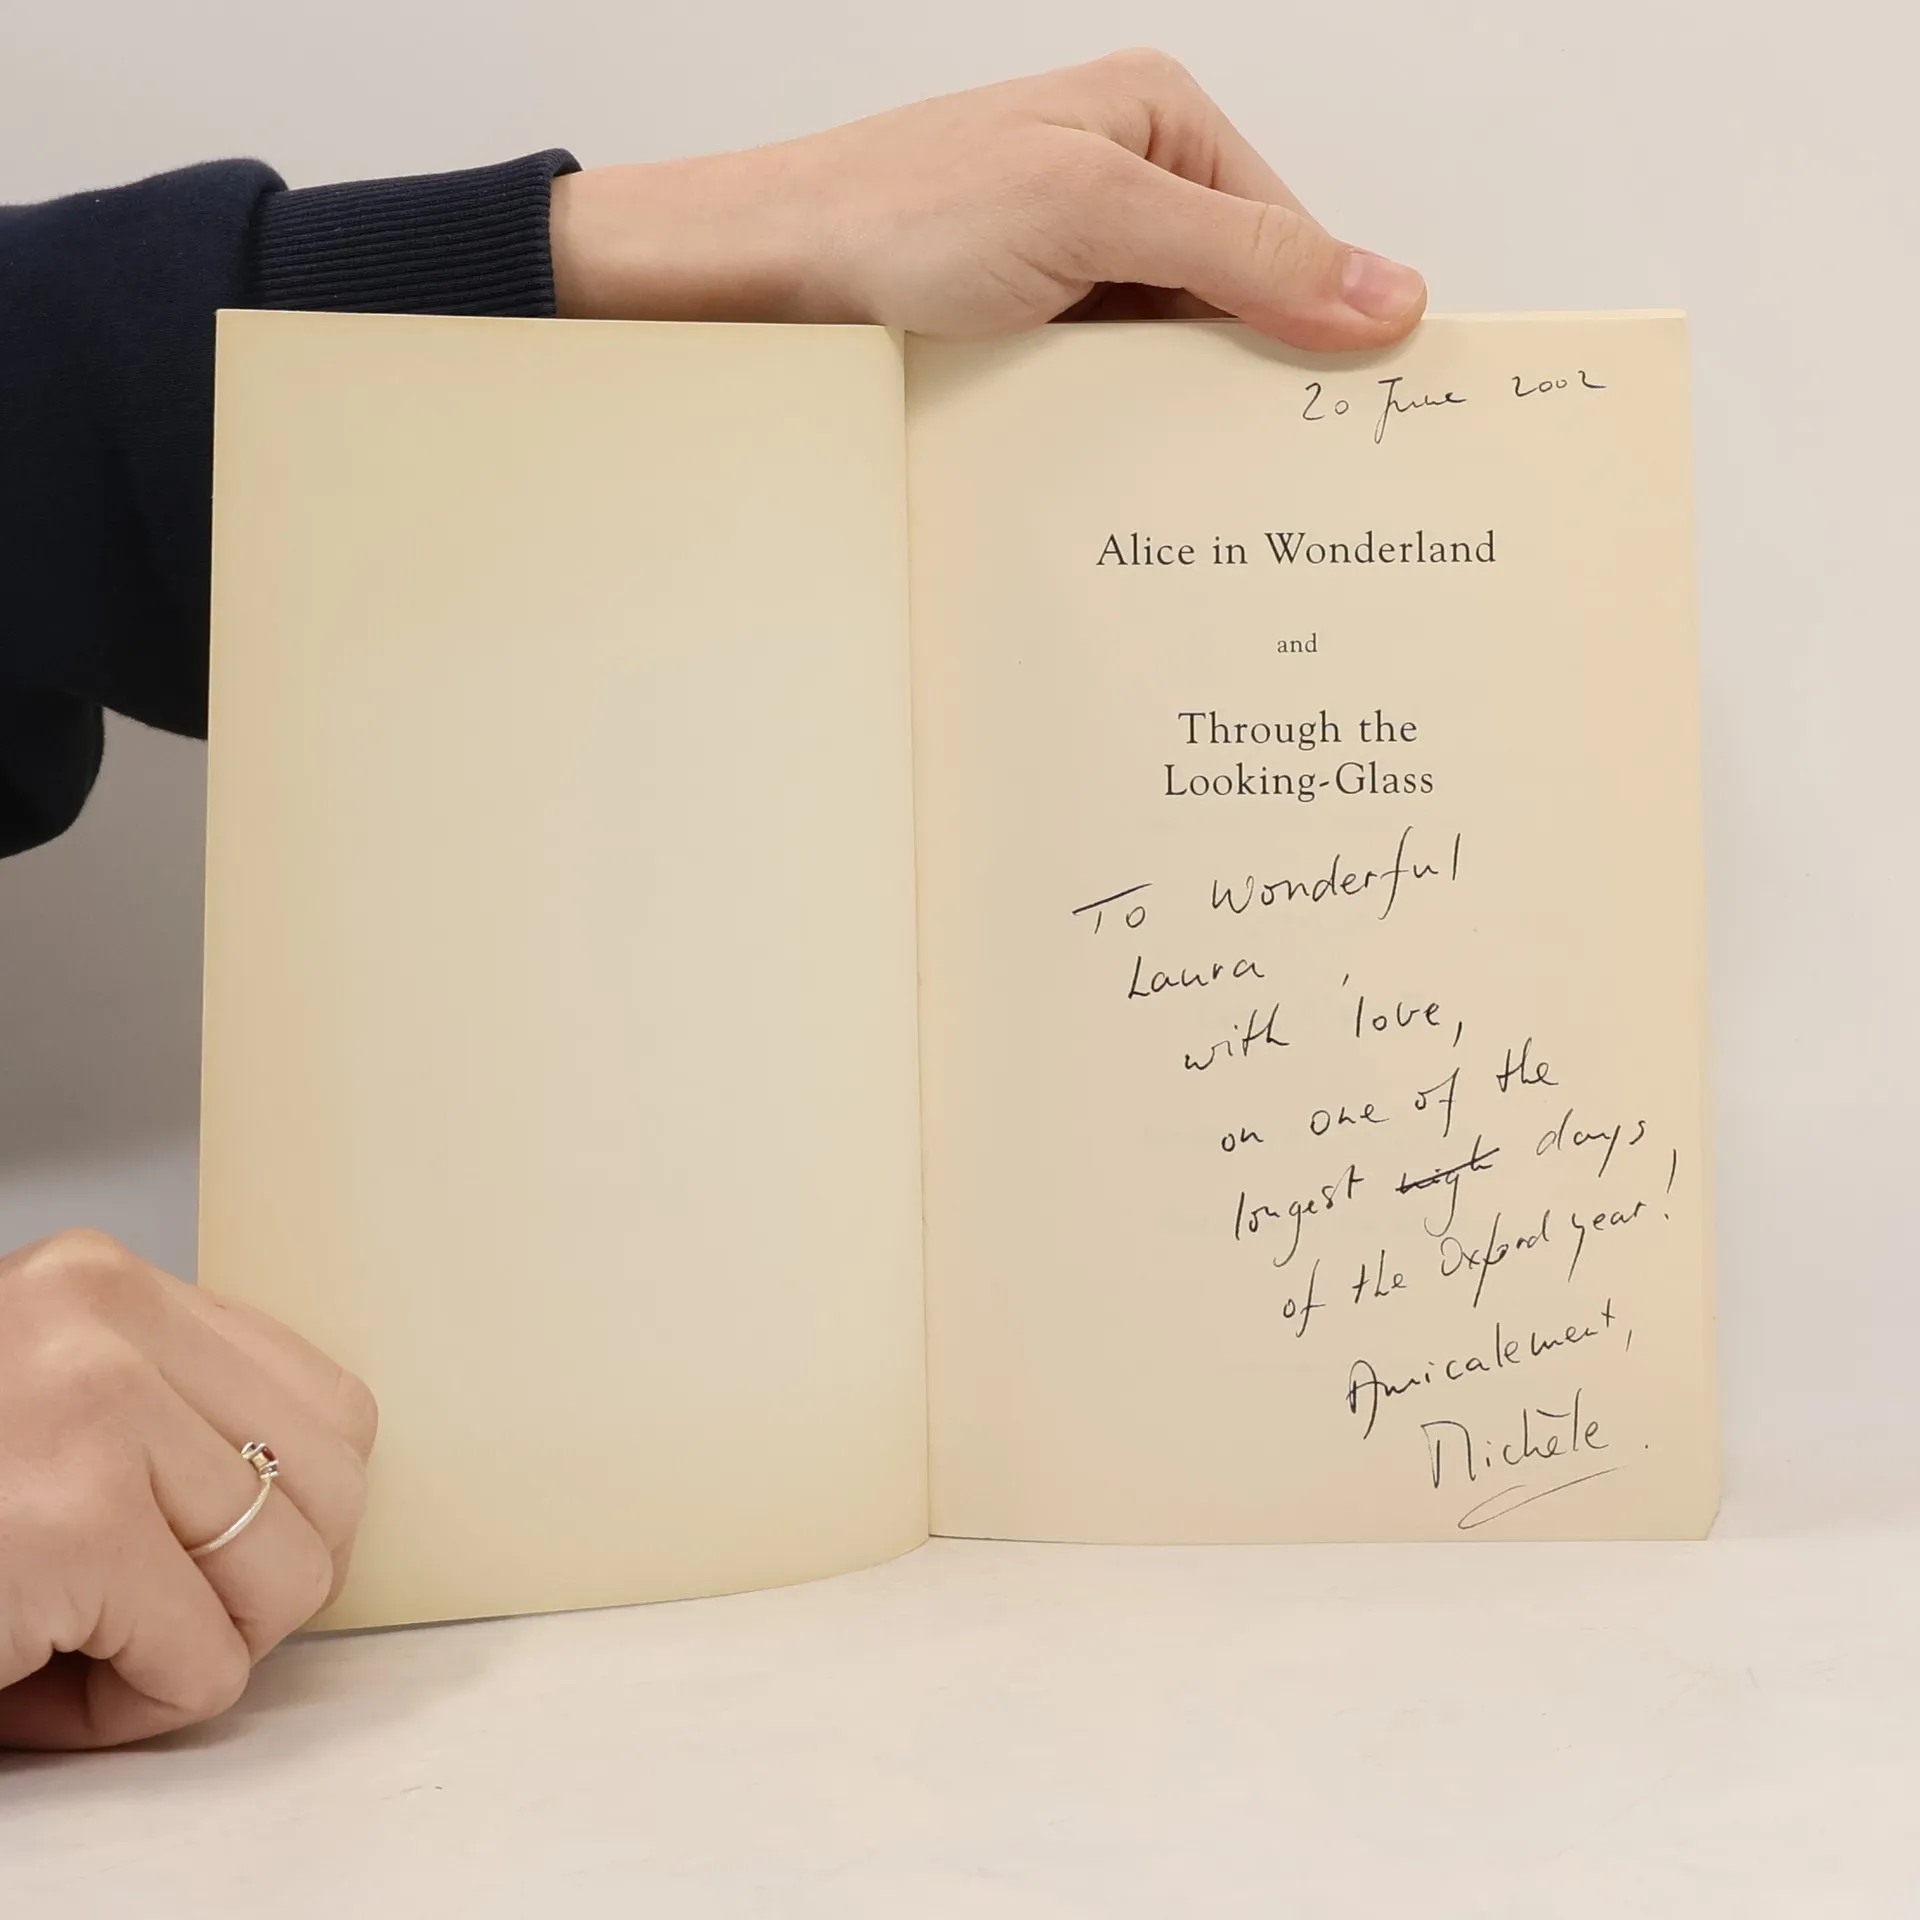 20 June 2002
Alice in Wonderland
and
Through the
Looking-Glass
To Wonderful
Laura
with love,
on one of the
longest days
of the Oxford year!
Amicalement,
Michèle.